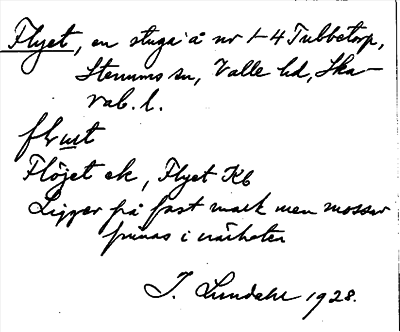 Flyet, en stuga å nr 1-4 Tubbetorp,
Stenums sn, Valle hd, Ska-
rab. l.
Flöjet ek, Flyet Kb
Ligger på fast mark men mossar
finnas i närheten
J. Lundahl 1928.